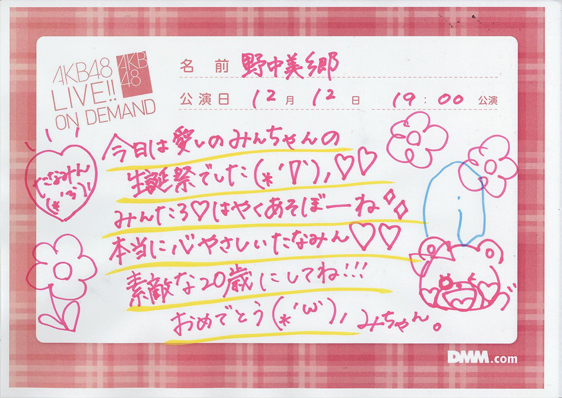 AKB48
LIVE!!
ON DEMAND
AKB
48
名 前 野中美郷
公演日 12月 12日 19:00 公演
今日は愛しのみんちゃんの
生誕祭でした(*´∇`)、♡♡
みんたろ♡はやくあそぼーね
本当に心やさしいたなみん♡♡
素敵な20歳にしてね!!!
おめでとう(*´ω`)、みちゃん。
たなみん
(*´ω`)
i
DMM.com